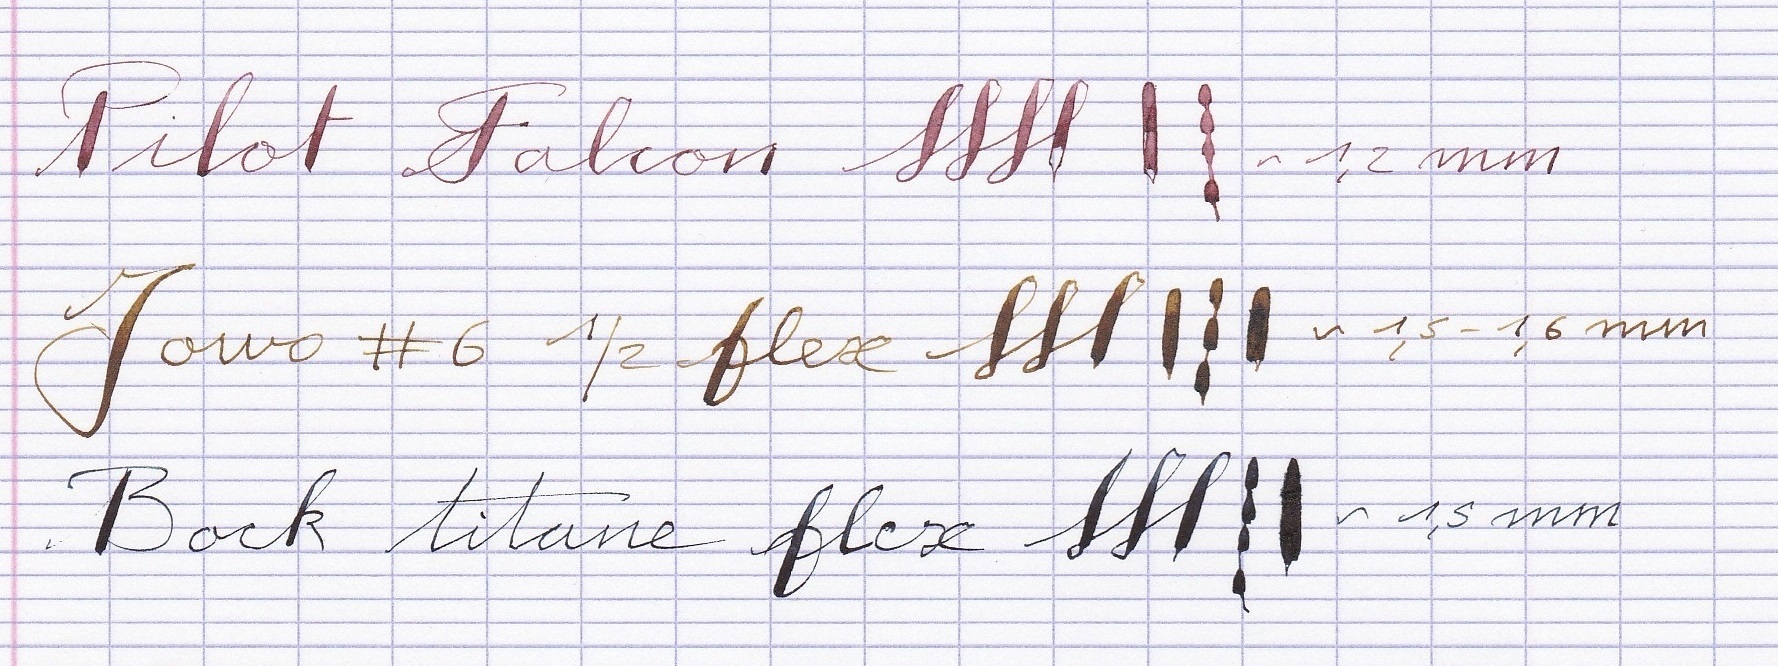 Pilot Falcon ~ 1,2 mm
Jowo #6 1/2 flex ~ 1,5 - 1,6 mm
Bock titane flex ~ 1,5 mm